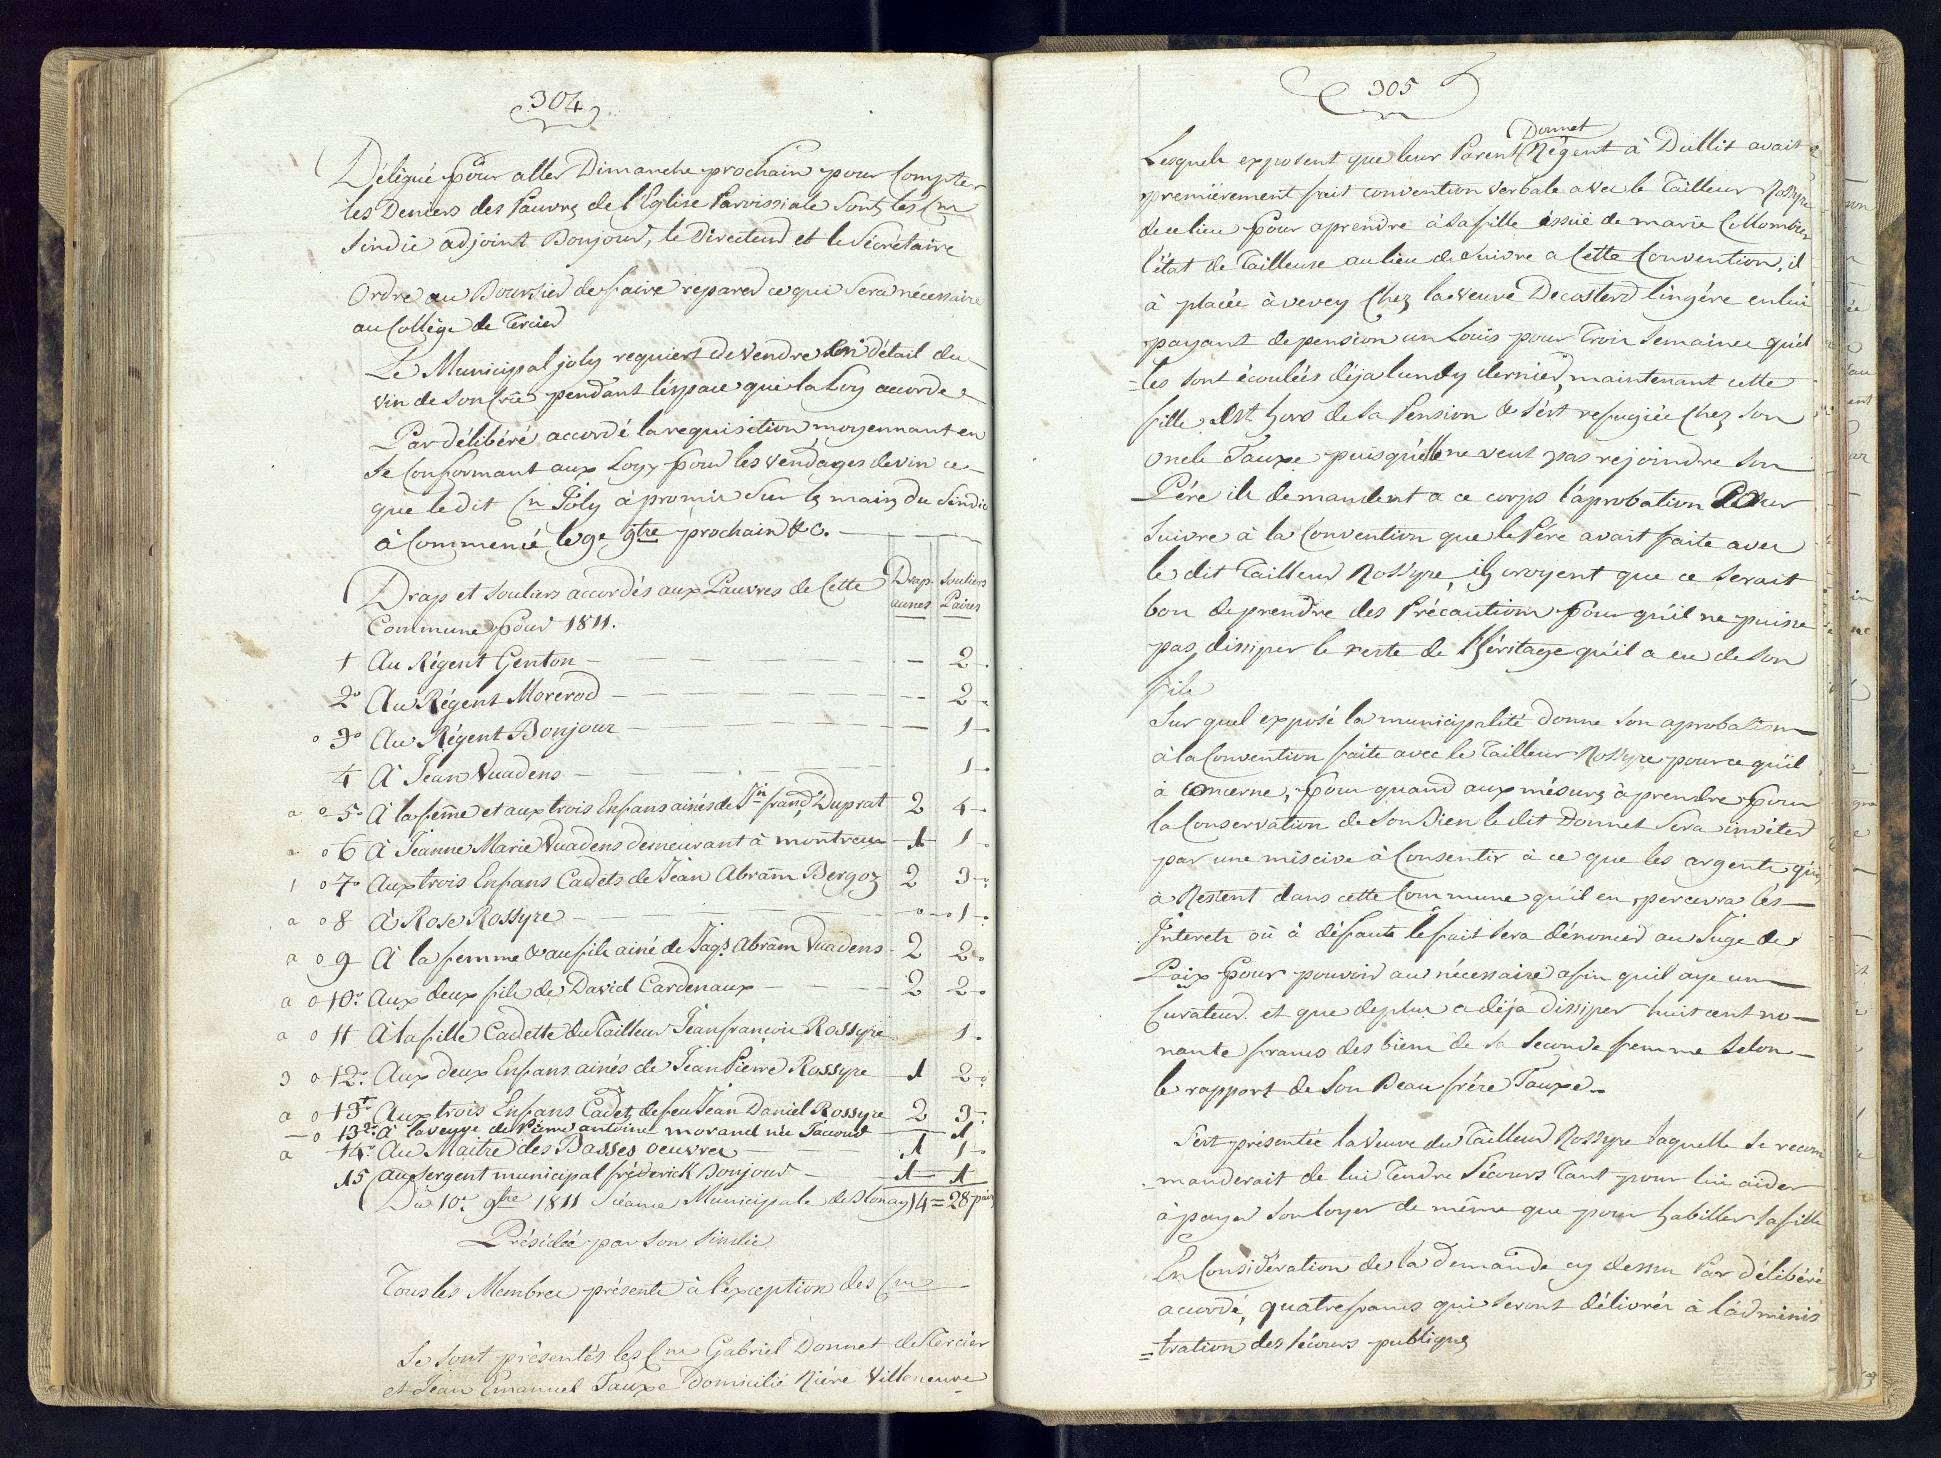 304
Délégué pour aller Dimanche prochain pour Compter
les Deniers des Pauvres de l'Eglise Paroissiale Sont les Cns
Sindic adjoint Bonjour, le Directeur et le Sécrétaire
Ordre au Boursier de faire reparer ce qui Sera nécessaire
au Collège de Tercier
Le Municipal joly requiert de Vendre En détail du
vin de Son Crû pendant l'éspace que la Loy accorde
Par délibéré accordé la requisition moyennant en
Se Conformant aux Loyx pour les vendages de vin ce
que le dit Cn Joly à promis Sur les mains du Sindic
à Commencé le 9e 9bre prochain &c.
Drap et Souliers accordés aux Pauvres de Cette
Commune pour 1811.
Drap aunes
Souliers Paires
1 Au Régent Genton — 2
2° Au Régent Morerod — 2
° 3° Au Régent Bonjour — 1
4 À Jean Vuadens — 1
a o 5° À la fême et aux trois Enfans ainés de Jn frans Duprat 2 4
a o 6 À Jeanne Marie Vuadens demeurant à montreux 1 1
1 o 7° Aux trois Enfans Cadets de Jean Abram Bergoz 2 3
a o 8 À Rose Rossyre — 1
a o 9 À la femme & au fils ainé de Jaqs Abram Vuadens 2 2
a o 10° Aux deux fils de David Cardenaux 2 2
a o 11 À la fille Cadette du Tailleur Jean françois Rossyre 1
3 o 12° Aux deux Enfans ainés de Jean Pierre Rossyre 1 2
a o 13° Aux trois Enfans Cadets de feu Jean Daniel Rossyre 2 3
o 13 2° À la veuve de Pierre antoine morand née Taccoud 1
a 14° Au Maitre des Basses oeuvres 1 1
15 au Sergent municipal fréderick Bonjour 1 1
Du 10e 9bre 1811 Séance Municipale de Blonay 14 = 28 pairs
Présidée par Son Sindic
Tous les Membres présents à l'éxception des Cns
Se Sont présentés les Cns Gabriel Donnet de Tercier
et Jean Emanuel Tauxe Domicilié Rière Villeneuve
305
Lesquels exposent que leur Parent Donnet Régent à Dullit avait
premièrement fait convention verbale avec le Tailleur Rossyre
de ce lieu pour aprendre à Sa fille issuë de marie Collombier
l'état de Tailleuse au lieu de Suivre a Cette Convention, il
à placée à vevey Chez la Veuve Decosterd lingére en lui
payant de pension un Louis pour Trois Semaines quel
=les Sont écoulées déja lundy dernier, maintenant cette
fille est hors de Sa Pension & s'est refugiée Chez Son
Oncle Tauxe puisqu'elle ne veut pas rejoindre Son
Pére ils demandent a ce corps l'aprobation Pour
Suivre à la Convention que le Pére avait faite avec
le dit Tailleur Rossyre, ils croyent que ce Serait
bon de prendre des Précautions pour qu'il ne puisse
pas dissiper le reste de l'Héritage qu'il a eu de Son
fils
Sur quel exposé la municipalité donne Son aprobation
à la Convention faite avec le Tailleur Rossyre pour ce qu'il
à concerne, pour quand aux mésures à prendre pour
la Conservation de Son Bien le dit Donnet Sera inviter
par une missive à Consentir à ce que les argents qu'il
à Restent dans cette Commune qu'il en percevra les
Interets où à défaute le fait Sera dénoncer au Juge de
Paix pour pouvoir au nécessaire afin quil aye un
Curateur. et que de plus a déja dissiper huit cent no-
nante francs des biens de Sa Seconde femme Selon
le rapport de Son Beau frére Tauxe.
S'est présentée la Veuve du Tailleur Rossyre laquelle Se recom
=manderait de lui Tendre Sécours Tant pour lui aider
à payer Son loyer de même que pour habiller Sa fille
En Considération de la Demande cy dessus Par délibéré
accordé, quatre francs qui Seront délivrés à l'adminis
=tration des Sécours publiques